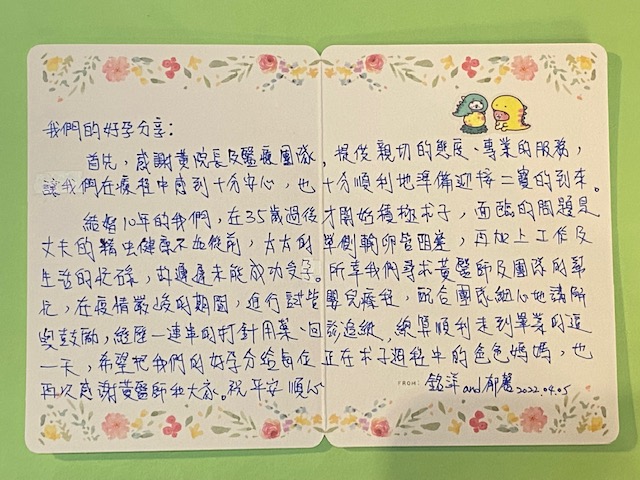 我們的好孕分享：
首先，感謝黃院長及醫療團隊，提供親切的態度、專業的服務，
讓我們在療程中感到十分安心，也十分順利地準備迎接二寶的到來。
結婚10年的我們，在35歲過後才開始積極求子，面臨的問題是
丈夫的精虫健康不如從前，太太的單側輸卵管阻塞，再加上工作及
生活的忙碌，故遲遲未能成功受孕。所幸我們尋求黃醫師及團隊的幫
忙，在疫情嚴峻的期間，進行試管嬰兒療程，配合團隊細心地講解
與鼓勵，經歷一連串的打針用藥、回診追蹤，總算順利走到畢業的這
一天，希望把我們的好孕分給每位正在求子過程中的爸爸媽媽，也
再次感謝黃醫師和大家。祝平安順心
FROM: 銘洋and郁蕙2022.04.05